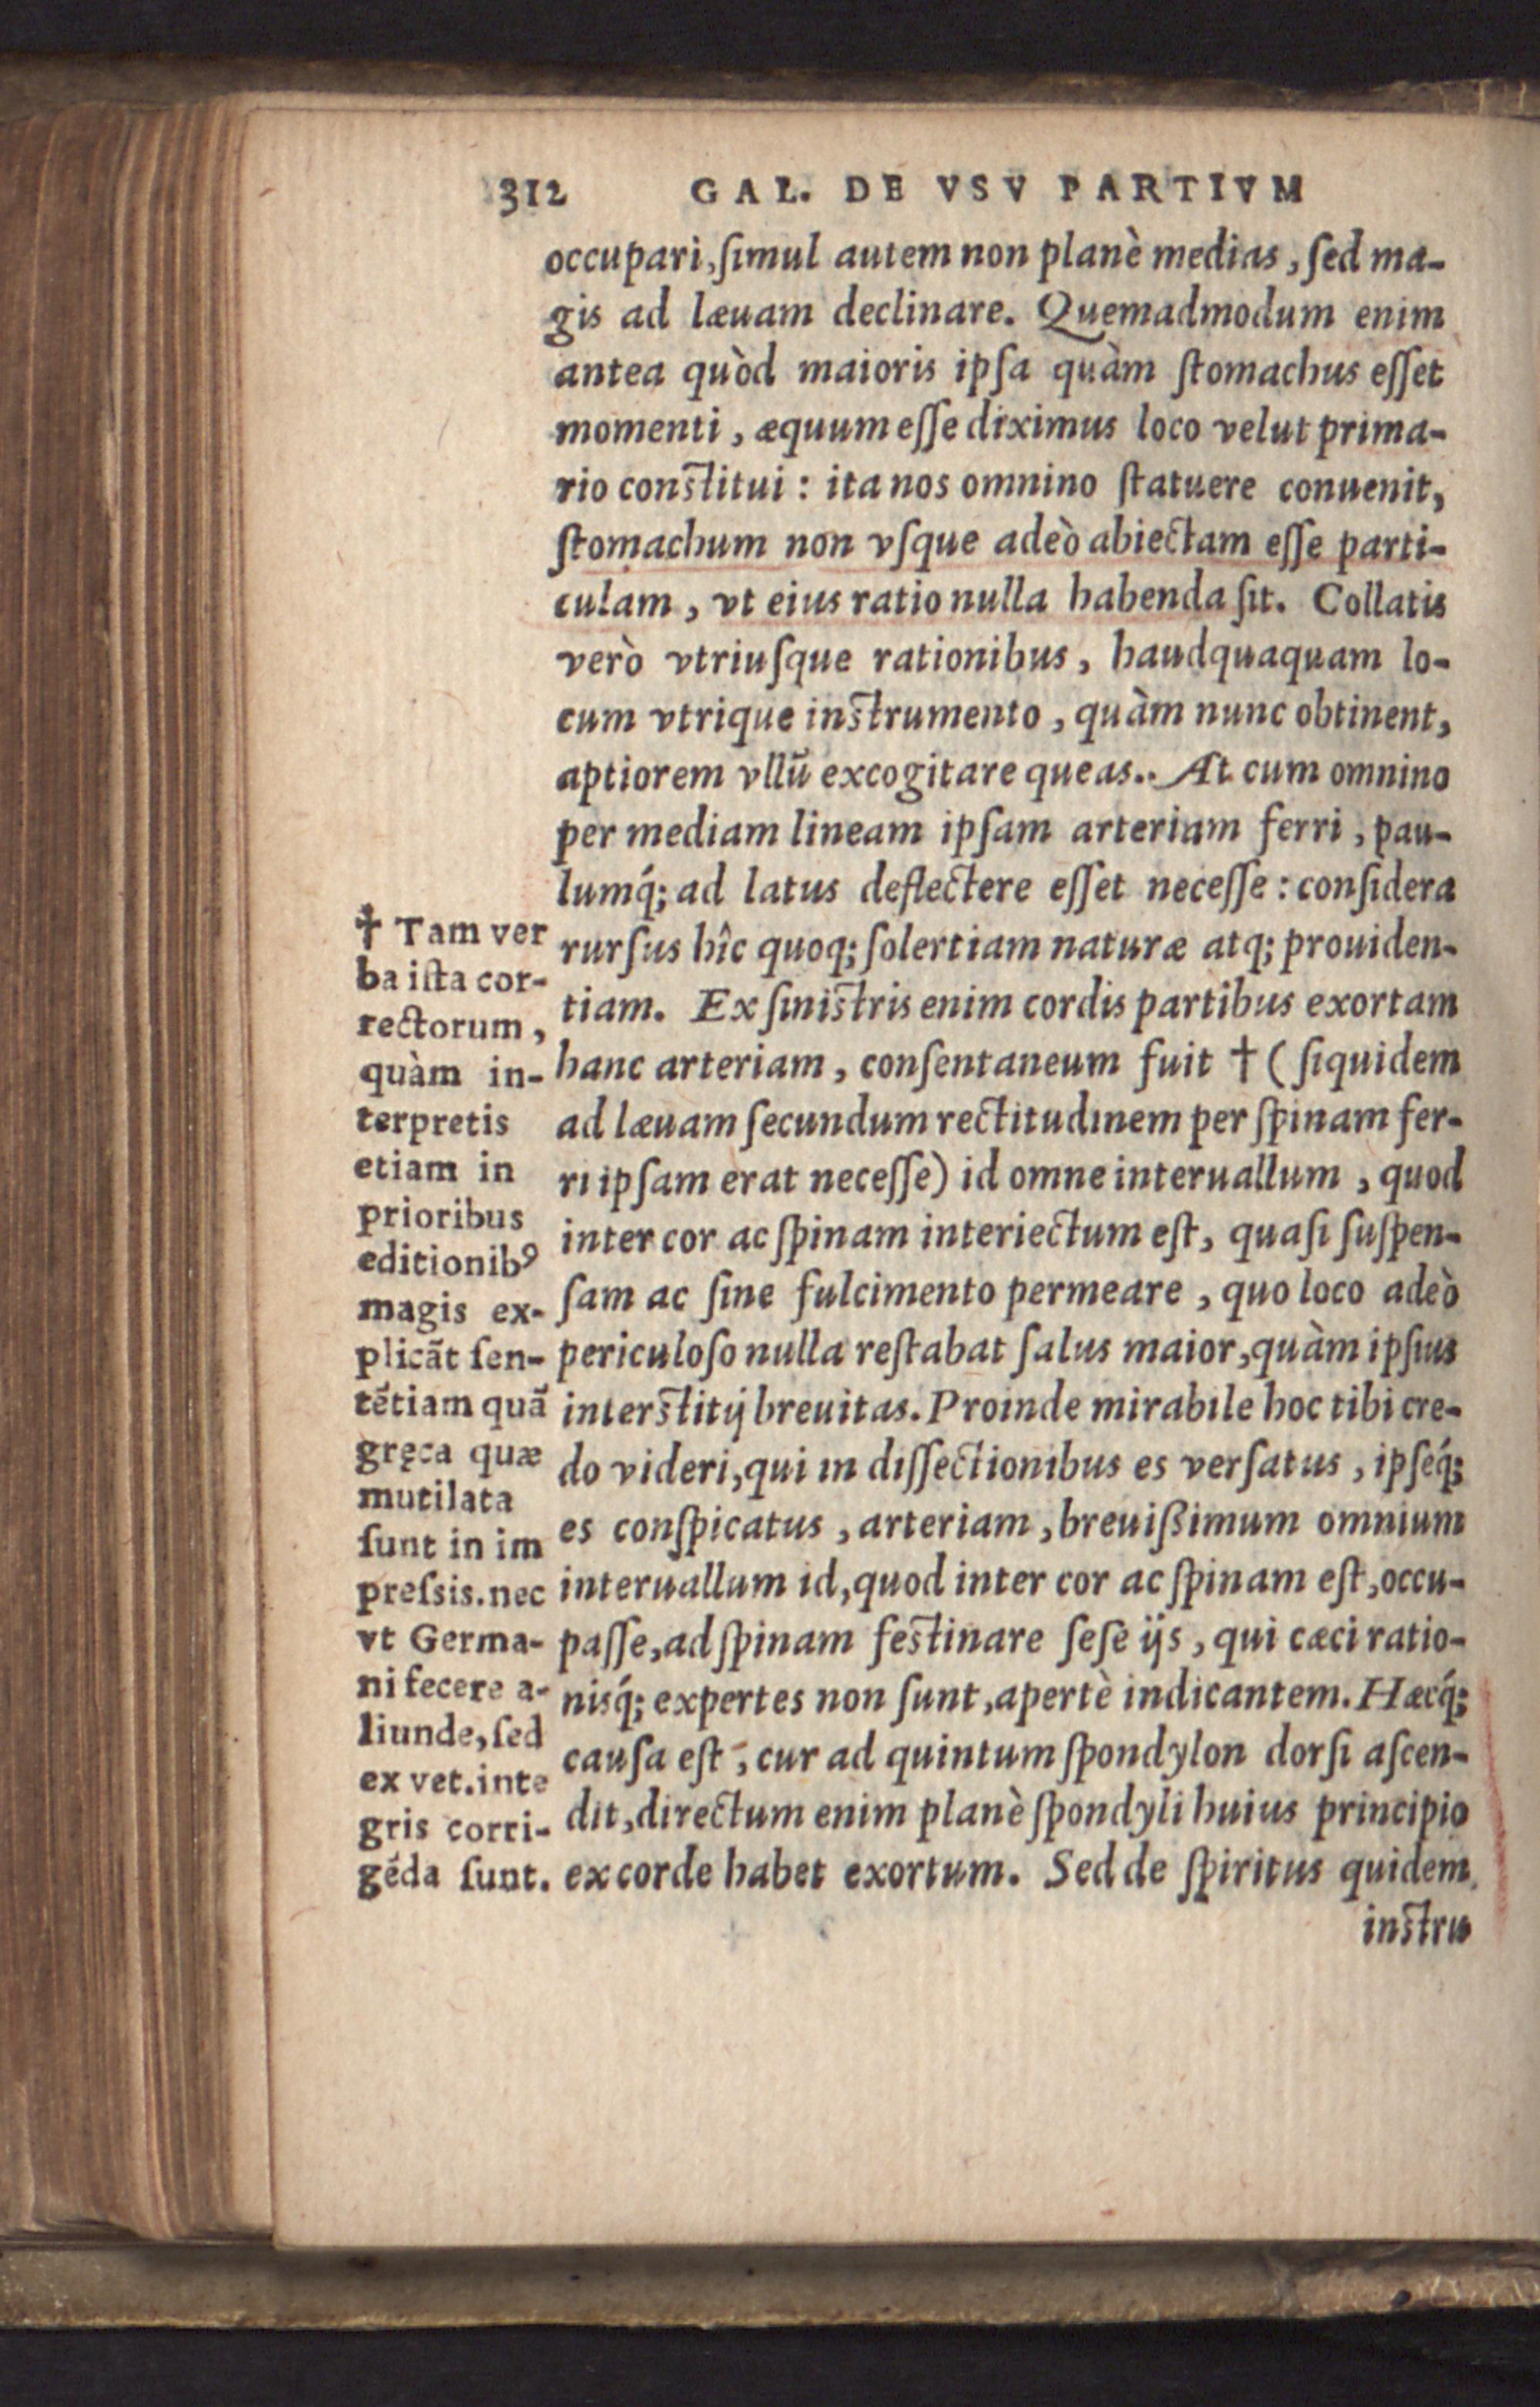 312 GAL. DE VSV PARTIVM
occupari, ſimul autem non planè medias, ſed ma-
gis ad læuam declinare. Quemadmodum enim
antea quòd maioris ipſa quàm ſtomachus eſſet
momenti, æquum eſſe diximus loco velut prima-
rio conſtitui: ita nos omnino ſtatuere conuenit,
ſtomachum non vſque adeò abiectam eſſe parti-
culam, vt eius ratio nulla habenda ſit. Collatis
verò vtriuſque rationibus, haudquaquam lo-
cum vtrique inſtrumento, quàm nunc obtinent,
aptiorem vllū excogitare queas.. At cum omnino
per mediam lineam ipſam arteriam ferri, pau-
lumq́; ad latus deflectere eſſet neceſſe: conſidera
rurſus hîc quoq; ſolertiam naturæ atq; prouiden-
tiam. Ex ſiniſtris enim cordis partibus exortam
hanc arteriam, conſentaneum fuit † (ſiquidem
ad læuam ſecundum rectitudinem per ſpinam fer-
ri ipſam erat neceſſe) id omne interuallum, quod
inter cor ac ſpinam interiectum eſt, quaſi ſuſpen-
ſam ac ſine fulcimento permeare, quo loco adeò
periculoſo nulla reſtabat ſalus maior, quàm ipſius
interſtitij breuitas. Proinde mirabile hoc tibi cre-
do videri, qui in diſſectionibus es verſatus, ipſéq́;
es conſpicatus, arteriam, breuiſsimum omnium
interuallum id, quod inter cor ac ſpinam eſt, occu-
paſſe, ad ſpinam feſtinare ſeſe ijs, qui cæci ratio-
nisq́; expertes non ſunt, apertè indicantem. Hæcq́;
cauſa eſt, cur ad quintum ſpondylon dorſi aſcen-
dit, directum enim planè ſpondyli huius principio
ex corde habet exortum. Sed de ſpiritus quidem
inſtru
† Tam ver
ba iſta cor-
rectorum,
quàm in-
terpretis
etiam in
prioribus
editionibꝰ
magis ex-
plicāt ſen-
tētiam quā
gręca quæ
mutilata
ſunt in im
preſsis. nec
vt Germa-
ni fecere a-
liunde, ſed
ex vet. inte
gris corri-
gēda ſunt.